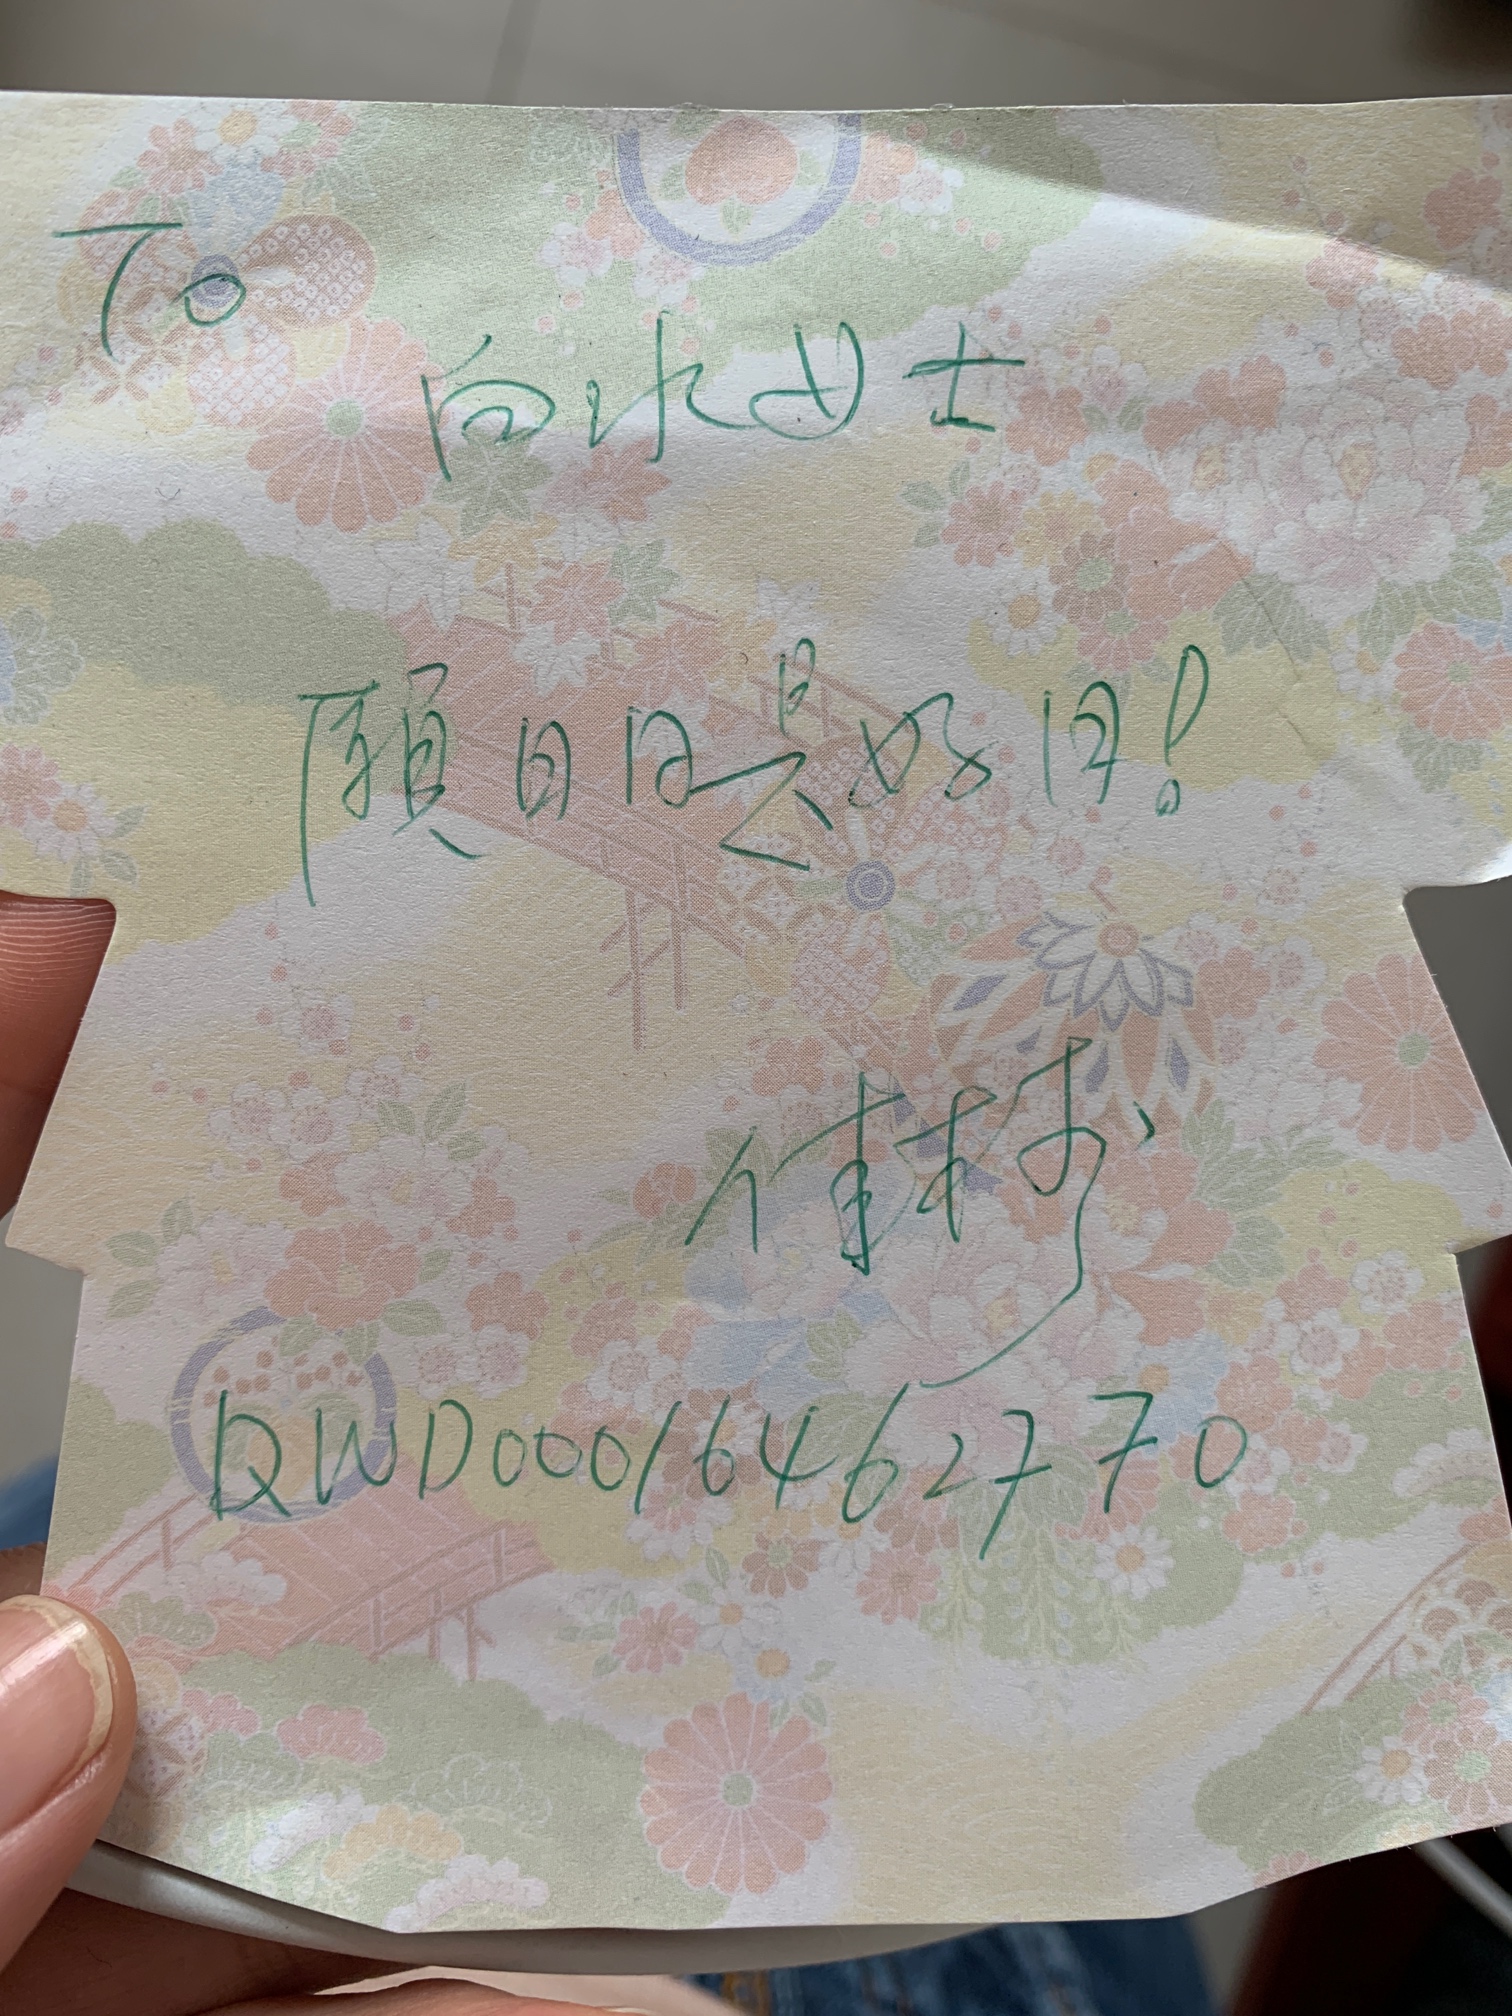 To
向水女士
願日日是好日!
QWD00016462770